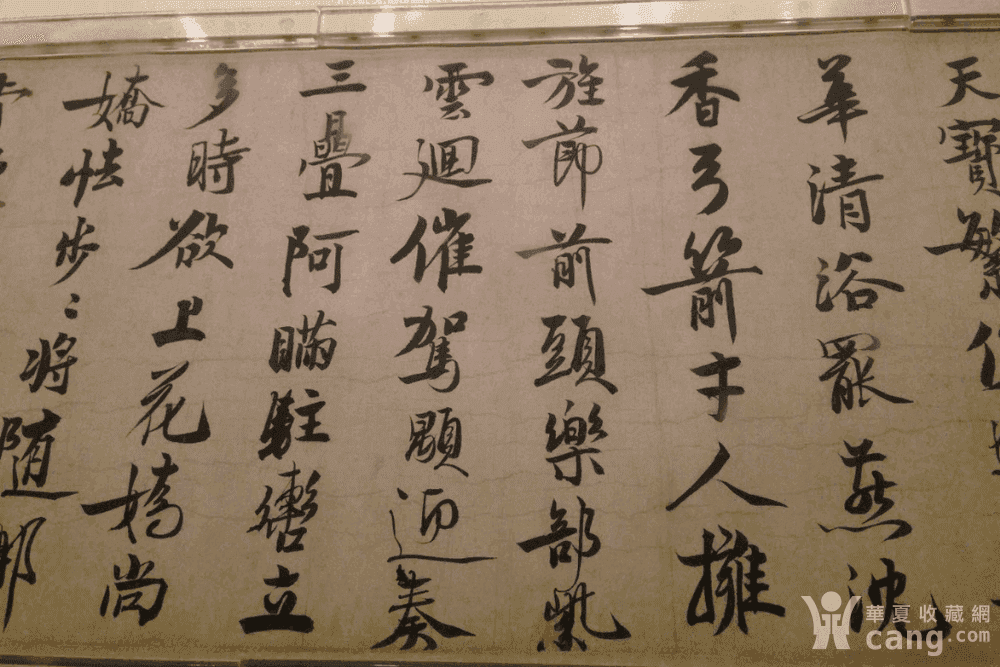 天寶繁
華清浴罷燕沈
香弓箭才人擁
旌節前頭樂部紫
雲迴催駕迎奏
三疊阿瞞駐轡立
多時欲上花嬌尚
嬌怯步〻將隨
華夏收藏網
cang.com